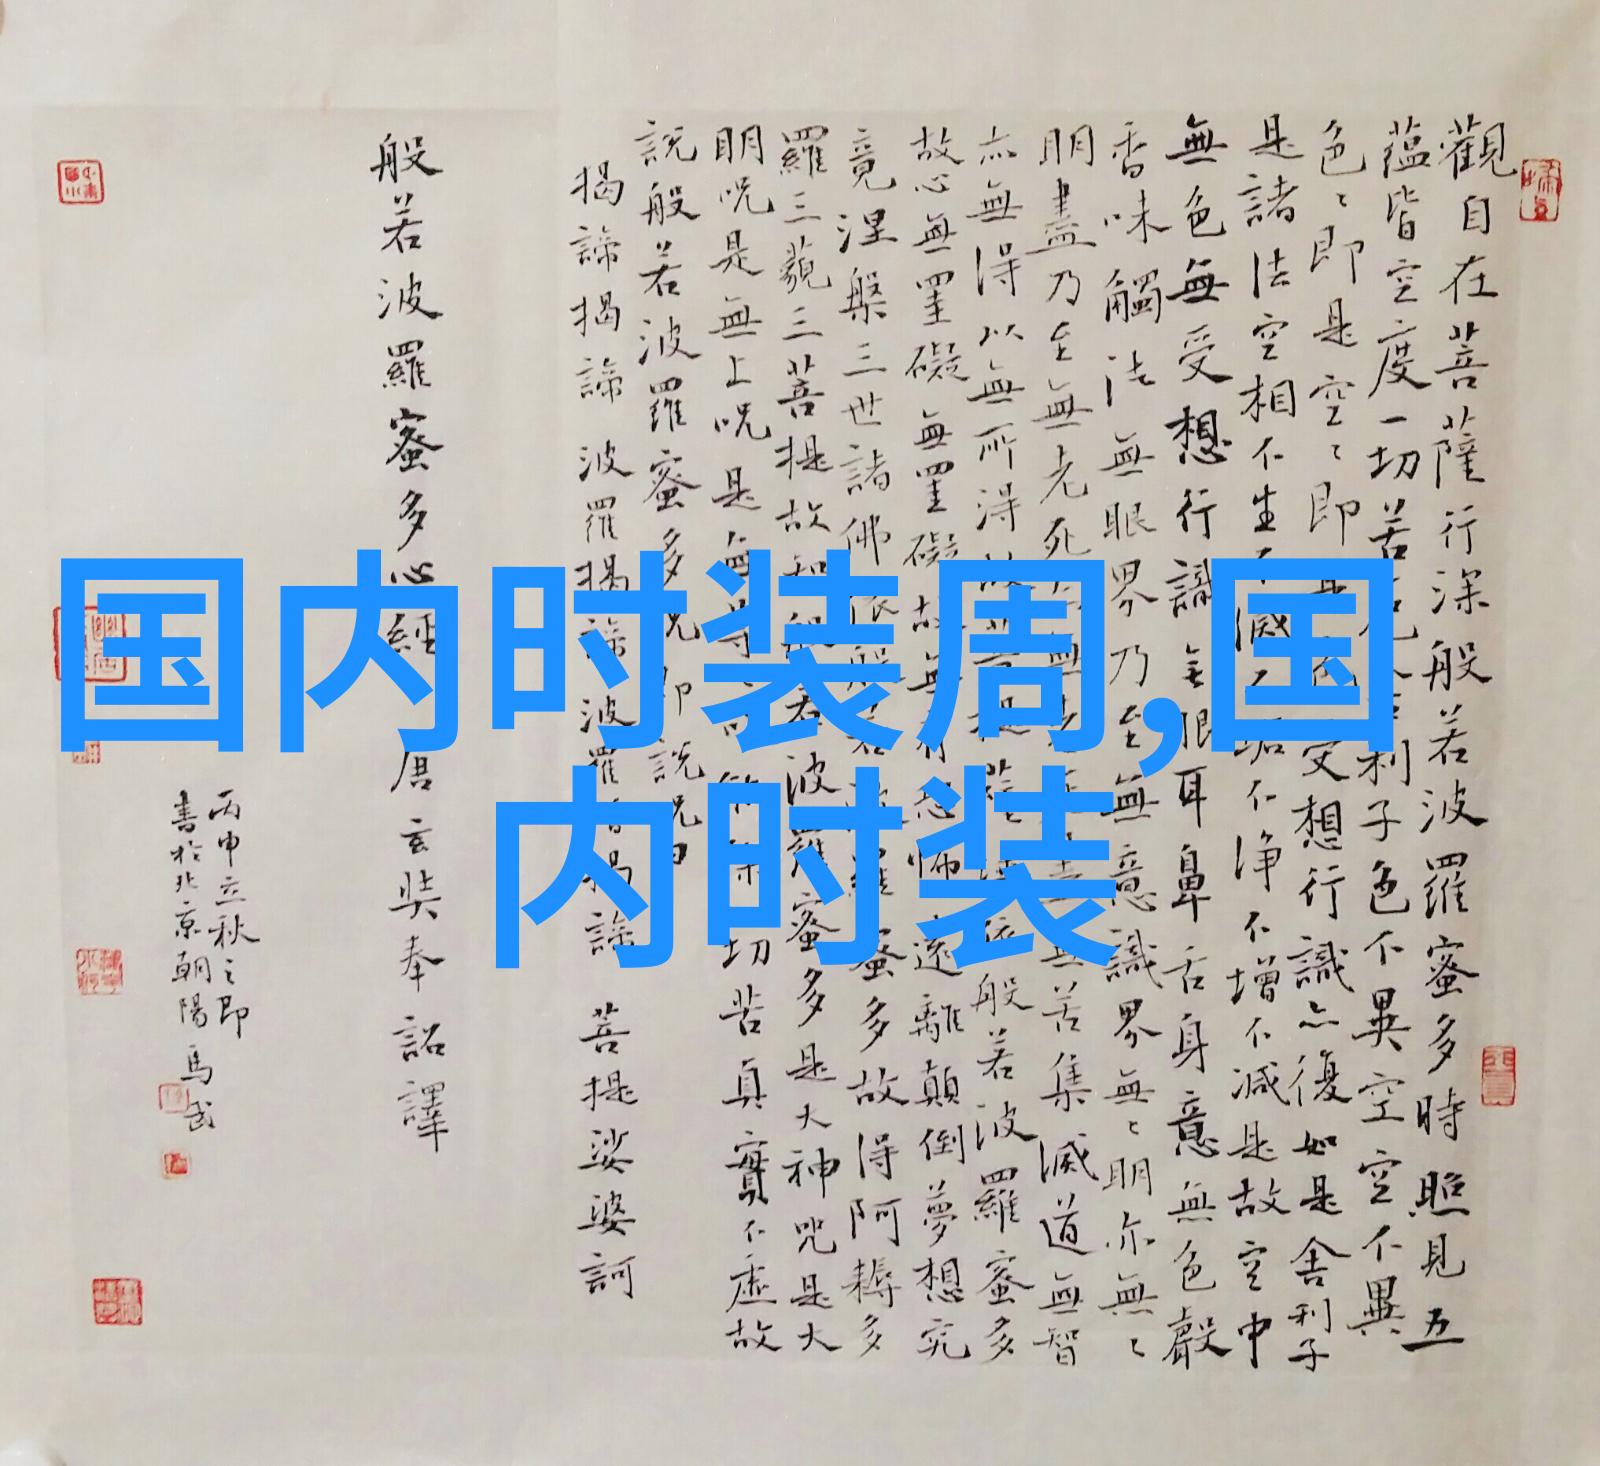 国内时装周,国
内时装
觀自在菩薩行深般若波羅蜜多時照見五
蘊皆空度一切苦利子色不異空空不異
色〻即是空〻即受想行識亦復如是舍利子
是諸法空相不生不滅不垢不淨不增不減是故空中
無色無受想行識無眼耳鼻舌身意無色聲
香味觸法無眼界乃至無意識界無〻明亦無〻
明盡乃至無老死無苦集滅道無智
亦無得以無所得故依般若波羅蜜多
故心無罣礙無罣礙故無有恐怖遠離顛倒夢想究
竟涅槃三世諸佛依般若蜜多故得阿耨多
羅三藐三菩提故知般若波羅蜜多是大神咒是大
明呪是無上呪是無等切苦真實不虛故
說般若波羅蜜多呪即說呪曰
揭諦揭諦波羅揭諦波羅僧揭諦菩提娑婆訶
般若波羅蜜多心經唐玄奘奉詔譯
丙申立秋之即
書於北京朝陽馬武